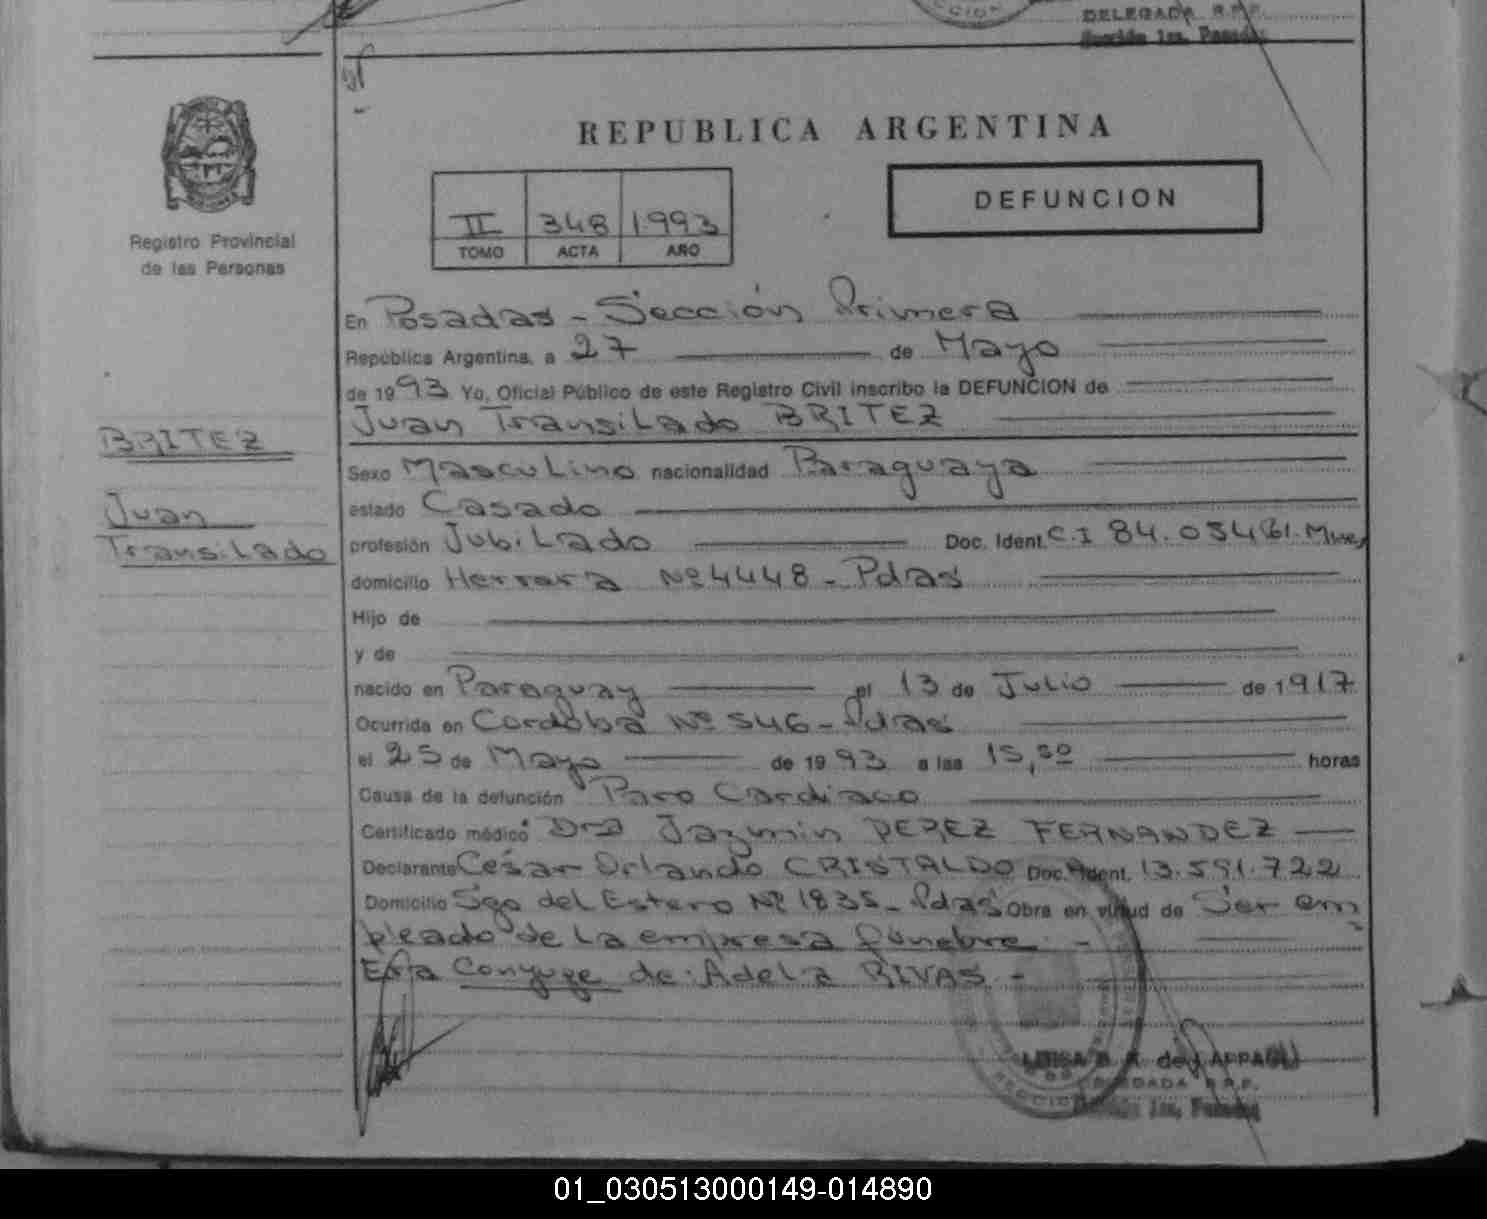 DELEGADA R.P.P.
Sección 1ra. Posadas
REPUBLICA ARGENTINA
Registro Provincial
de las Personas
DEFUNCION
II 348 1.993
TOMO ACTA AÑO
En Posadas - Sección Primera
República Argentina, a 27 de Mayo
de 1993 Yo, Oficial Público de este Registro Civil inscribo la DEFUNCION de
Juan Transilado BRITEZ
BRITEZ
Juan
Transilado
Sexo Masculino nacionalidad Paraguaya
estado Casado
profesión Jubilado Doc. Ident. C.I 84.
domicilio Herrera Nº 4448 - Pdas
Hijo de
y de
nacido en Paraguay el 13 de Julio de 1917
Ocurrida en Cordoba Nº 546 - Pdas
el 25 de Mayo de 1993 a las 15,50 horas
Causa de la defunción Paro Cardiaco
Certificado médico Dra Jazmin PEREZ FERNANDEZ
Declarante César Orlando CRISTALDO Doc. Ident. 13.591.722
Domicilio Sgo del Estero Nº 1835 - Pdas Obra en virtud de Ser em
pleado de la empresa fúnebre. -
Era Conyuge de: Adela RIVAS -
LUISA de
DELEGADA R.P.P.
Sección 1ra. Posadas
01_030513000149-014890